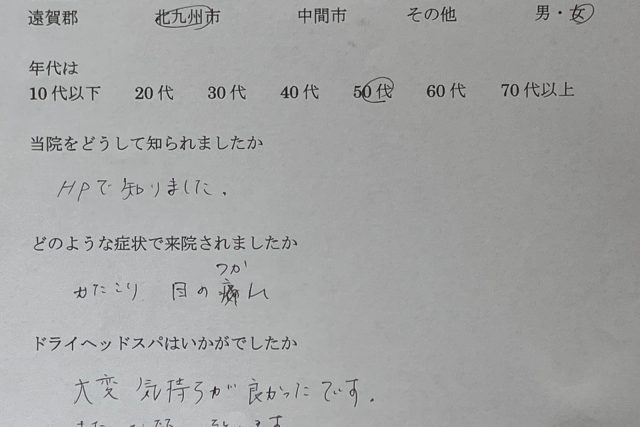 遠賀郡 北九州市 中間市 その他 男・女
年代は
10代以下 20代 30代 40代 50代 60代 70代以上
当院をどうして知られましたか
HPで知りました。
どのような症状で来院されましたか
つか
かたこり 目の
ドライヘッドスパはいかがでしたか
大変 気持ちが良かったです。